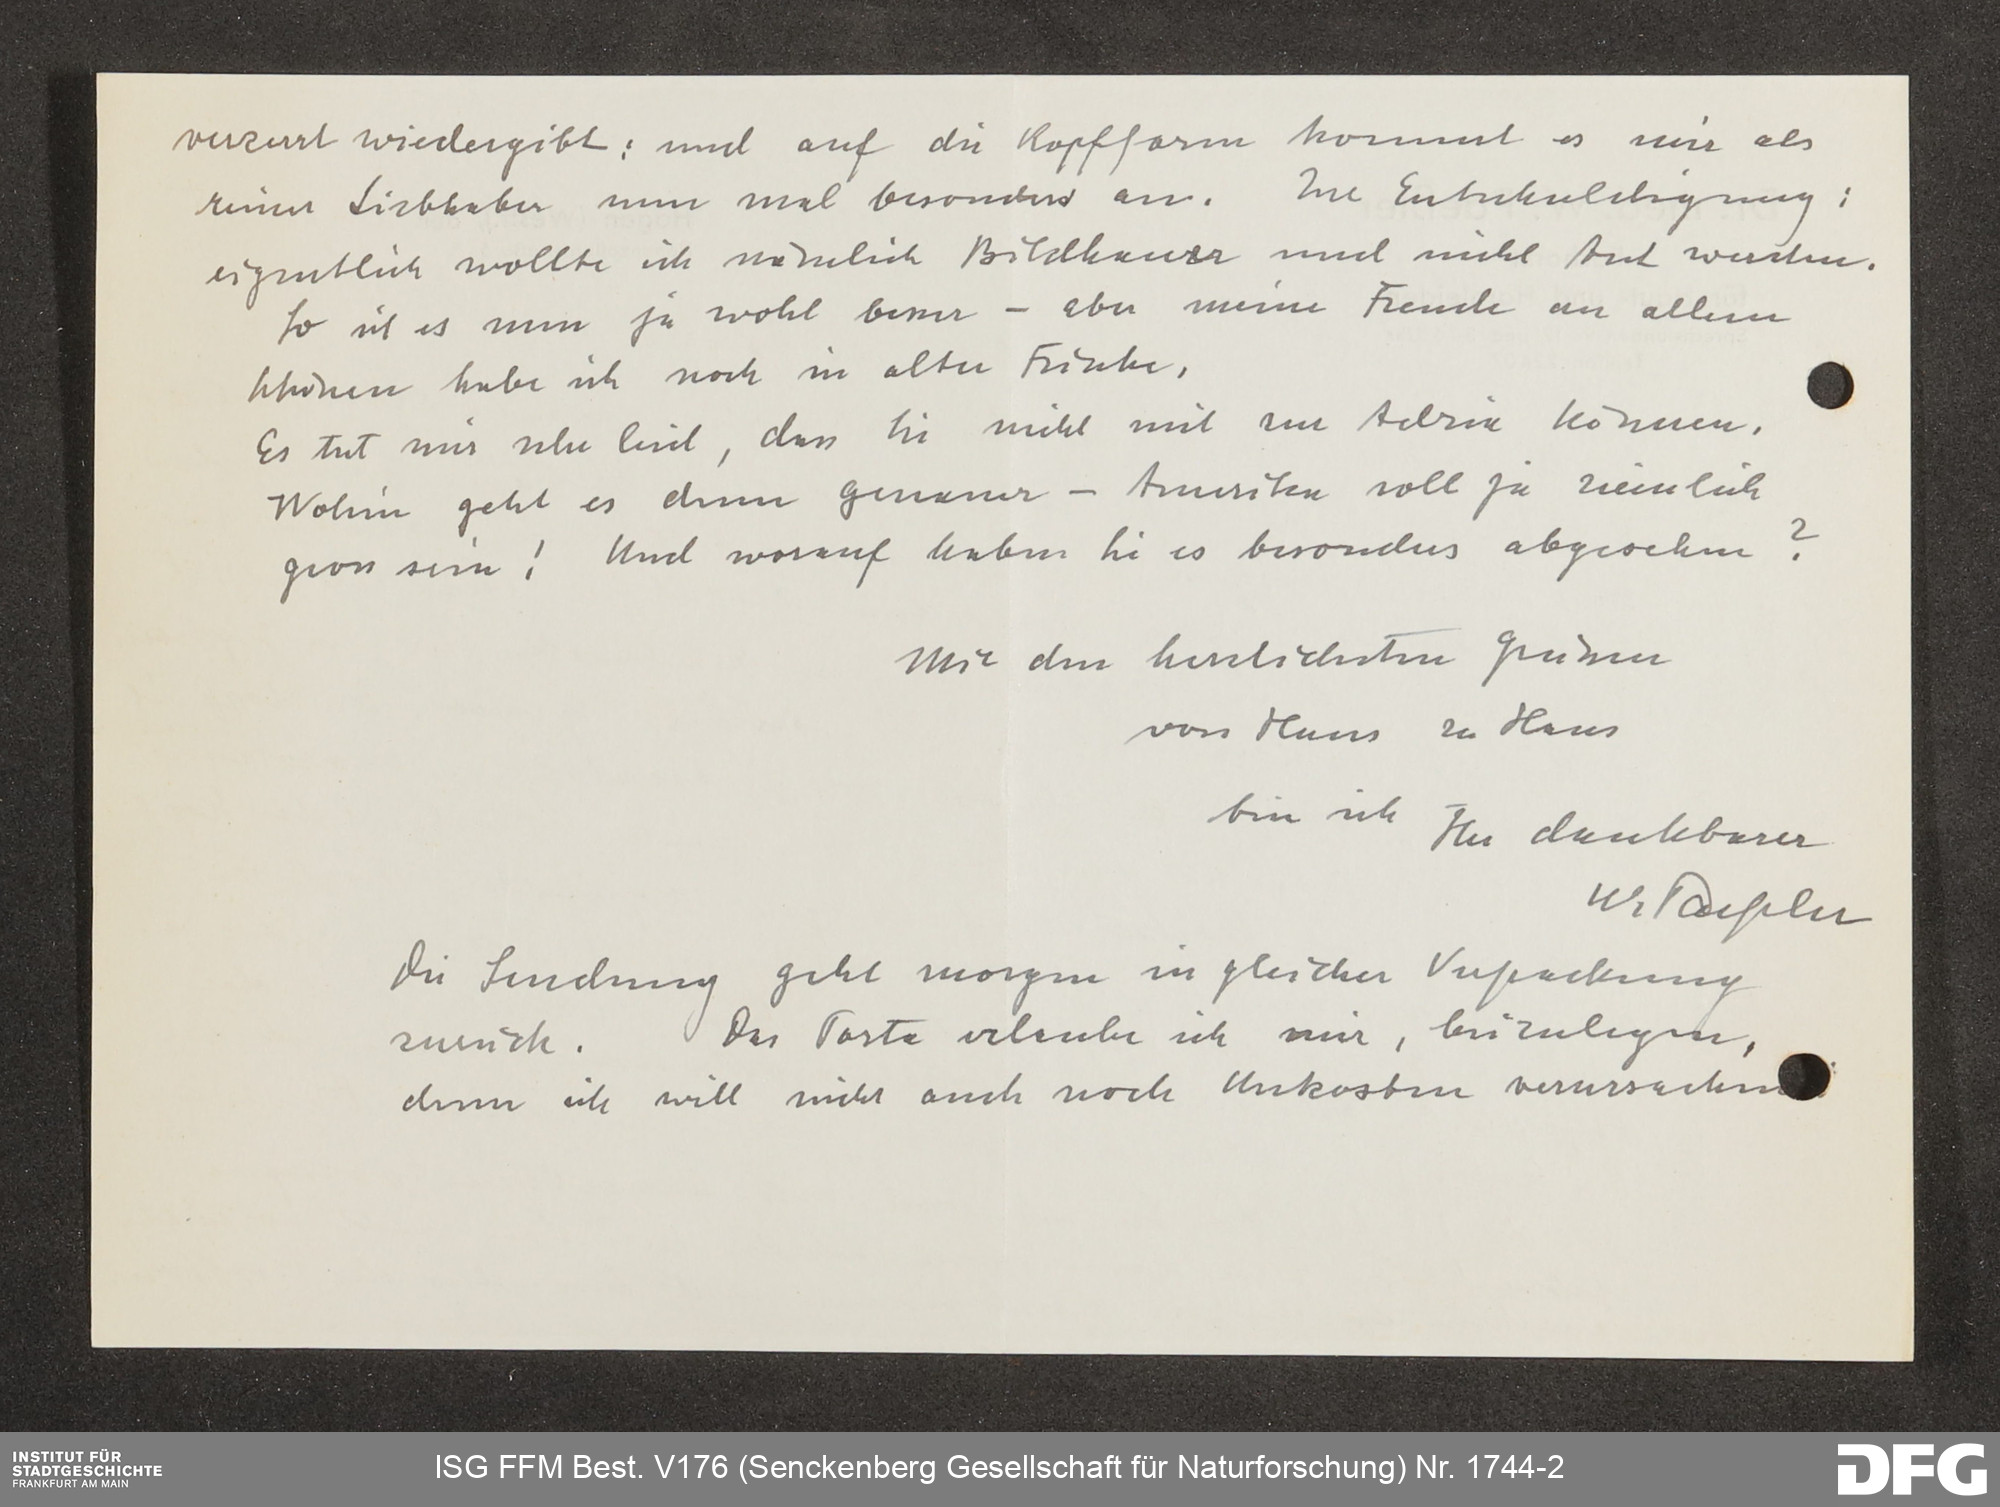 verzerrt wiedergibt; und auf die Kopfform kommt es mir als
reiner Liebhaber nun mal besonders an. Zur Entschuldigung:
eigentlich wollte ich nämlich Bildhauer und nicht Arzt werden.
So ist es nun ja wohl besser – aber meine Freude an allem
Schönen habe ich noch in alter Frische.
Es tut mir sehr leid, dass Sie nicht mit zur Adria können.
Wohin geht es denn genauer – Amerika soll ja ziemlich
gross sein! Und worauf haben Sie es besonders abgesehen?
Mit den herzlichsten Grüssen
von Haus zu Haus
bin ich Ihr dankbarer
Die Sendung geht morgen in gleicher Verpackung
zurück. Das Porto erlaube ich mir, beizulegen,
denn ich will nicht auch noch Unkosten verursachen
INSTITUT FÜR
STADTGESCHICHTE
FRANKFURT AM MAIN
ISG FFM Best. V176 (Senckenberg Gesellschaft für Naturforschung) Nr. 1744-2
DFG